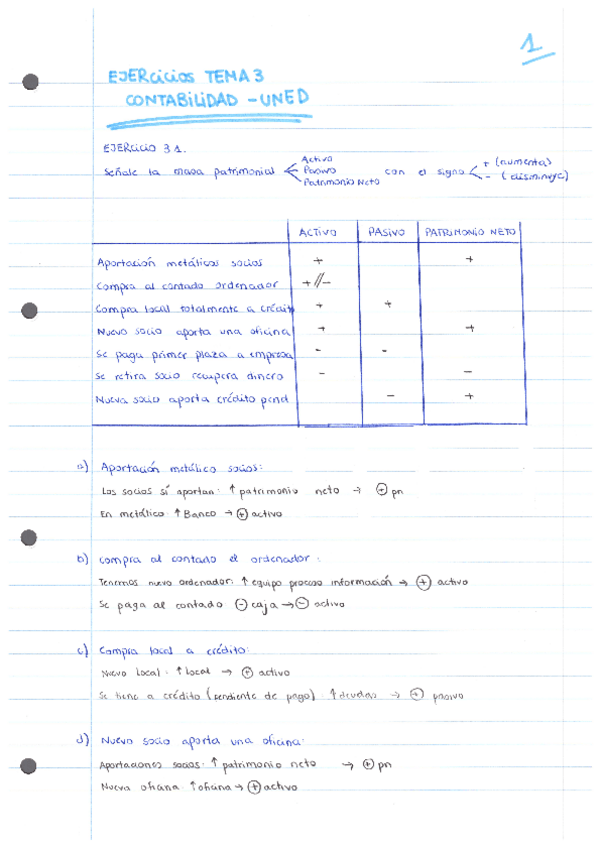 1
EJERcicios TEMA 3
CONTABILIDAD - UNED
EJERCICIO 3.1.
Activo
+ (aumenta)
Señale la masa patrimonial Pasivo con el signo
- (disminuye)
Patrimonio Neto
ACTIVO PASIVO PATRIMONIO NETO
Aportación metálicos socios + +
Compra al contado ordenador +//-
Compra local totalmente a crédito + +
Nuevo socio aporta una oficina + +
Se paga primer plaza a empresa - -
Se retira socio recupera dinero - -
Nuevo socio aporta crédito pend - +
a) Aportación metálico socios:
Los socios sí aportan: ↑ patrimonio neto → ⊕ pn
En metálico ↑ Banco → ⊕ activo
b) compra al contado el ordenador:
Tenemos nuevo ordenador: ↑ equipo proceso información → ⊕ activo
Se paga al contado ⊖ caja → ⊖ activo
c) Compra local a crédito:
Nuevo local: ↑ local → ⊕ activo
Se tiene a crédito (pendiente de pago): ↑ deudas → ⊕ pasivo
d) Nuevo socio aporta una oficina:
Aportaciones socios: ↑ patrimonio neto → ⊕ pn
Nueva oficina: ↑ oficina → ⊕ activo